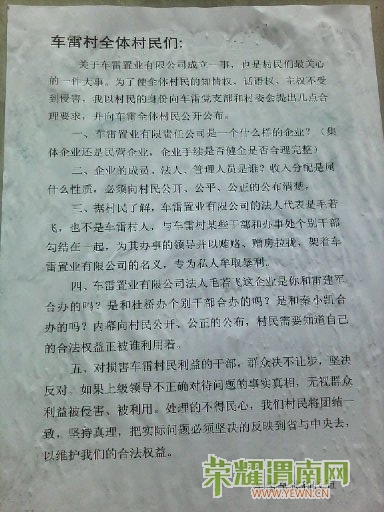 车雷村全体村民们:
关于车雷置业有限公司成立一事，也是村民们最关心
的一件大事。为了使全体村民的知情权、话语权、主权不受
到侵害，我以村民的身份向车雷党支部和村委会提出几点合
理要求，并向车雷全体村民公开公布。
一、车雷置业有限责任公司是一个什么样的企业？（集
体企业还是民营企业，企业手续是否健全是否合理完整）
二、企业的成员、法人、管理人员是谁？收入分配是属
什么性质，必须向村民公开、公平、公正的公布清楚，
三、据村民了解，车雷置业有限公司的法人代表是毛若
飞，也不是车雷村人，与车雷村某些干部和办事处个别干部
勾结在一起，为其办事的领导并以贿赂、赠房拉拢，架着车
雷置业有限公司的名义，专为私人牟取暴利。
四、车雷置业有限公司法人毛若飞这企业是你和雷建军
合办的吗？是和杜桥办个别干部合办的吗？是和秦小凯合办
的吗？内幕向村民公开、公正的公布，村民需要知道自己
的合法权益正被谁利用着。
五、对损害车雷村民利益的干部，群众决不让步，坚决
反对。如果上级领导不正确对待问题的事实真相，无视群众
利益被侵害、被利用。处理的不得民心，我们村民将团结一
致，坚持真理，把实际问题必须坚决的反映到省与中央去，
以维护我们的合法权益。
荣耀渭南网
WWW.YEWN.CN